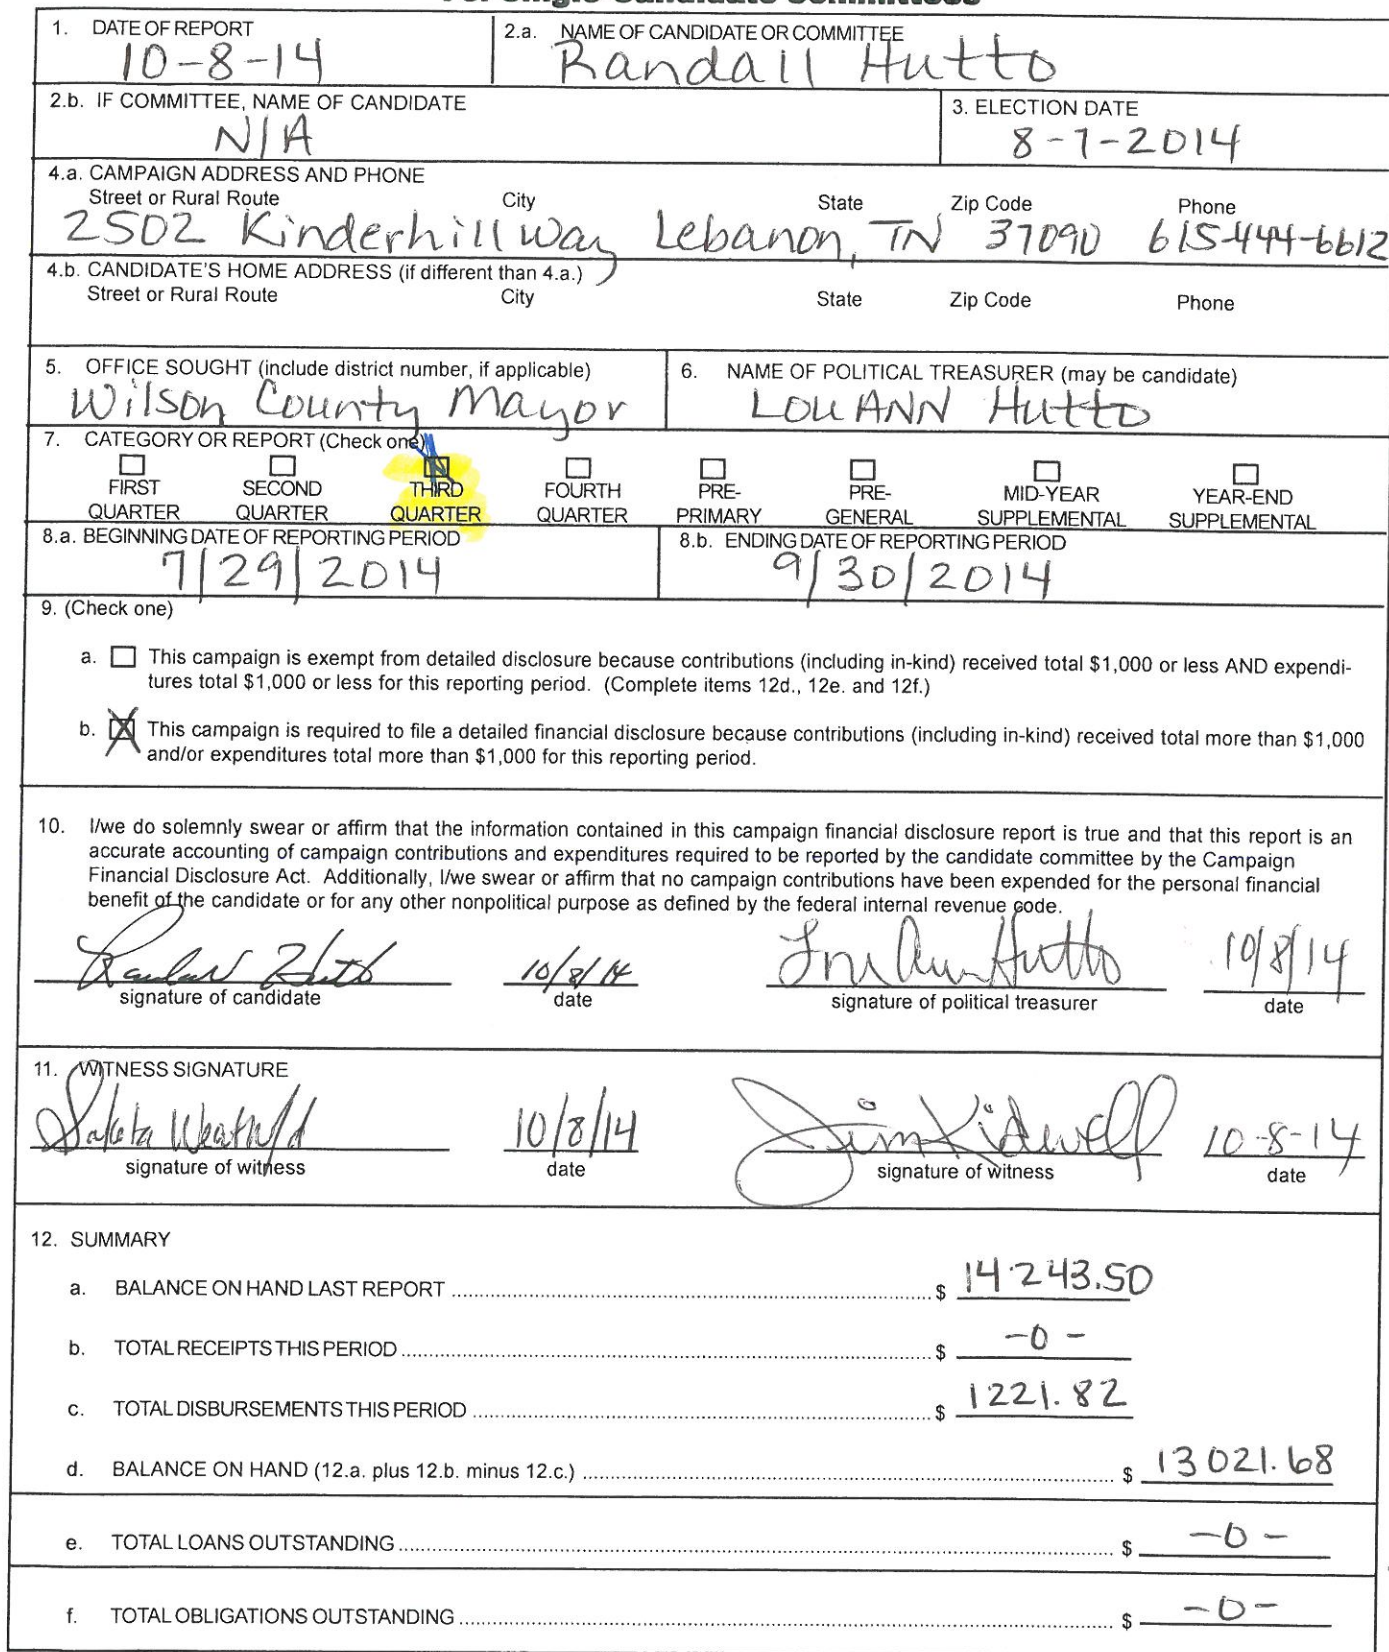 For Single-Candidate Committees
1. DATE OF REPORT
10-8-14
2.a. NAME OF CANDIDATE OR COMMITTEE
Randall Hutto
2.b. IF COMMITTEE, NAME OF CANDIDATE
N/A
3. ELECTION DATE
8-7-2014
4.a. CAMPAIGN ADDRESS AND PHONE
Street or Rural Route City State Zip Code Phone
2502 Kinderhill Way Lebanon, TN 37090 615-444-6612
4.b. CANDIDATE'S HOME ADDRESS (if different than 4.a.)
Street or Rural Route City State Zip Code Phone
5. OFFICE SOUGHT (include district number, if applicable)
Wilson County Mayor
6. NAME OF POLITICAL TREASURER (may be candidate)
LOU ANN Hutto
7. CATEGORY OR REPORT (Check one)
FIRST QUARTER
SECOND QUARTER
THIRD QUARTER
FOURTH QUARTER
PRE-PRIMARY
PRE-GENERAL
MID-YEAR SUPPLEMENTAL
YEAR-END SUPPLEMENTAL
8.a. BEGINNING DATE OF REPORTING PERIOD
7/29/2014
8.b. ENDING DATE OF REPORTING PERIOD
9/30/2014
9. (Check one)
a. This campaign is exempt from detailed disclosure because contributions (including in-kind) received total $1,000 or less AND expendi-
tures total $1,000 or less for this reporting period. (Complete items 12d., 12e. and 12f.)
b. X This campaign is required to file a detailed financial disclosure because contributions (including in-kind) received total more than $1,000
and/or expenditures total more than $1,000 for this reporting period.
10. I/we do solemnly swear or affirm that the information contained in this campaign financial disclosure report is true and that this report is an
accurate accounting of campaign contributions and expenditures required to be reported by the candidate committee by the Campaign
Financial Disclosure Act. Additionally, I/we swear or affirm that no campaign contributions have been expended for the personal financial
benefit of the candidate or for any other nonpolitical purpose as defined by the federal internal revenue code.
Randall Hutto 10/8/14 Lou Ann Hutto 10/8/14
signature of candidate date signature of political treasurer date
11. WITNESS SIGNATURE
10/8/14 Jim Kidwell 10-8-14
signature of witness date signature of witness date
12. SUMMARY
a. BALANCE ON HAND LAST REPORT $ 14243.50
b. TOTAL RECEIPTS THIS PERIOD $ -0-
c. TOTAL DISBURSEMENTS THIS PERIOD $ 1221.82
d. BALANCE ON HAND (12.a. plus 12.b. minus 12.c.) $ 13021.68
e. TOTAL LOANS OUTSTANDING $ -0-
f. TOTAL OBLIGATIONS OUTSTANDING $ -0-